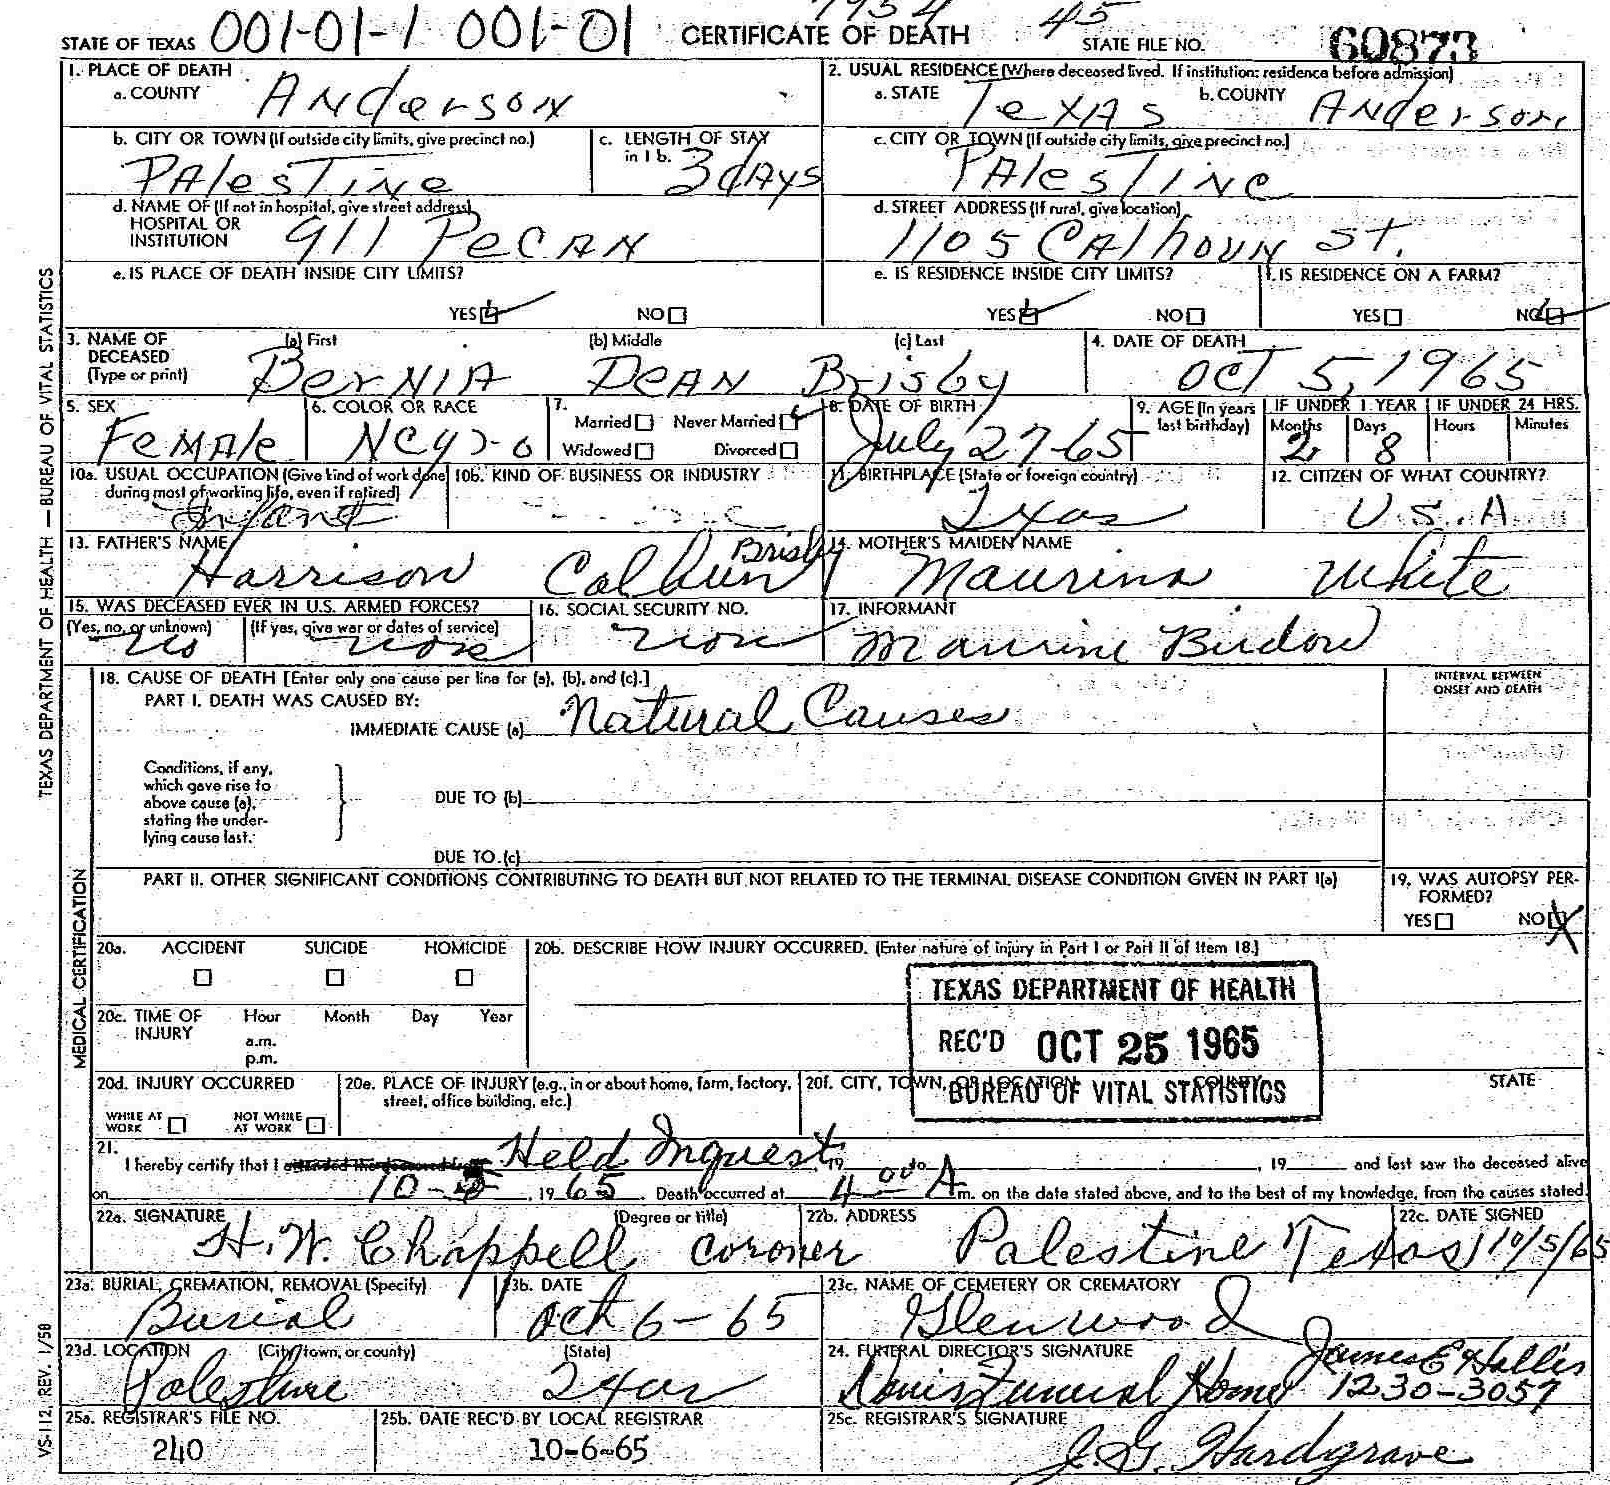 7954 45
STATE OF TEXAS 001-01-1 001-01 CERTIFICATE OF DEATH STATE FILE NO. 60873
1. PLACE OF DEATH
a. COUNTY Anderson
2. USUAL RESIDENCE (Where deceased lived. If institution: residence before admission)
a. STATE Texas b. COUNTY Anderson
b. CITY OR TOWN (If outside city limits, give precinct no.)
Palestine
c. LENGTH OF STAY in 1 b.
3 days
c. CITY OR TOWN (If outside city limits, give precinct no.)
Palestine
d. NAME OF (If not in hospital, give street address)
HOSPITAL OR
INSTITUTION 911 Pecan
d. STREET ADDRESS (If rural, give location)
1105 Calhoun St.
e. IS PLACE OF DEATH INSIDE CITY LIMITS?
YES NO
e. IS RESIDENCE INSIDE CITY LIMITS?
YES NO
f. IS RESIDENCE ON A FARM?
YES NO
3. NAME OF
DECEASED
(Type or print)
(a) First (b) Middle (c) Last
Bernia Dean Brisby
4. DATE OF DEATH
Oct 5, 1965
5. SEX
Female
6. COLOR OR RACE
Negro
7.
Married Never Married
Widowed Divorced
8. DATE OF BIRTH
July 27-65
9. AGE (In years
last birthday)
IF UNDER 1 YEAR IF UNDER 24 HRS.
Months Days Hours Minutes
2 8
10a. USUAL OCCUPATION (Give kind of work done
during most of working life, even if retired)
Infant
10b. KIND OF BUSINESS OR INDUSTRY
11. BIRTHPLACE (State or foreign country)
Texas
12. CITIZEN OF WHAT COUNTRY?
U.S.A
13. FATHER'S NAME
Harrison Calhoun Brisby
14. MOTHER'S MAIDEN NAME
Maurina White
15. WAS DECEASED EVER IN U.S. ARMED FORCES?
(Yes, no, or unknown) (If yes, give war or dates of service)
no none
16. SOCIAL SECURITY NO.
none
17. INFORMANT
Maurine Birdow
18. CAUSE OF DEATH [Enter only one cause per line for (a), (b), and (c).]
INTERVAL BETWEEN
ONSET AND DEATH
PART I. DEATH WAS CAUSED BY:
IMMEDIATE CAUSE (a) Natural Causes
Conditions, if any,
which gave rise to
above cause (a),
stating the under-
lying cause last.
DUE TO (b)
DUE TO (c)
PART II. OTHER SIGNIFICANT CONDITIONS CONTRIBUTING TO DEATH BUT NOT RELATED TO THE TERMINAL DISEASE CONDITION GIVEN IN PART I(a)
19. WAS AUTOPSY PER-
FORMED?
YES NO X
20a. ACCIDENT SUICIDE HOMICIDE
20b. DESCRIBE HOW INJURY OCCURRED. (Enter nature of injury in Part I or Part II of Item 18.)
20c. TIME OF
INJURY
Hour Month Day Year
a.m.
p.m.
TEXAS DEPARTMENT OF HEALTH
REC'D OCT 25 1965
BUREAU OF VITAL STATISTICS
20d. INJURY OCCURRED
WHILE AT
WORK
NOT WHILE
AT WORK
20e. PLACE OF INJURY (e.g., in or about home, farm, factory,
street, office building, etc.)
20f. CITY, TOWN, OR LOCATION COUNTY STATE
21.
I hereby certify that I attended the deceased from Held Inquest, 19 to , 19 and last saw the deceased alive
on 10-5, 1965. Death occurred at 4 00 A m. on the date stated above, and to the best of my knowledge, from the causes stated.
22a. SIGNATURE (Degree or title)
H. W. Chappell coroner
22b. ADDRESS
Palestine Texas
22c. DATE SIGNED
10/5/65
23a. BURIAL, CREMATION, REMOVAL (Specify)
Burial
23b. DATE
Oct 6-65
23c. NAME OF CEMETERY OR CREMATORY
Glenwood
23d. LOCATION (City, town, or county) (State)
Palestine Texas
24. FUNERAL DIRECTOR'S SIGNATURE
Funeral Home James E
1230-3057
25a. REGISTRAR'S FILE NO.
240
25b. DATE REC'D BY LOCAL REGISTRAR
10-6-65
25c. REGISTRAR'S SIGNATURE
J. G. Hardgrave
TEXAS DEPARTMENT OF HEALTH — BUREAU OF VITAL STATISTICS
MEDICAL CERTIFICATION
VS-112, REV. 1/58